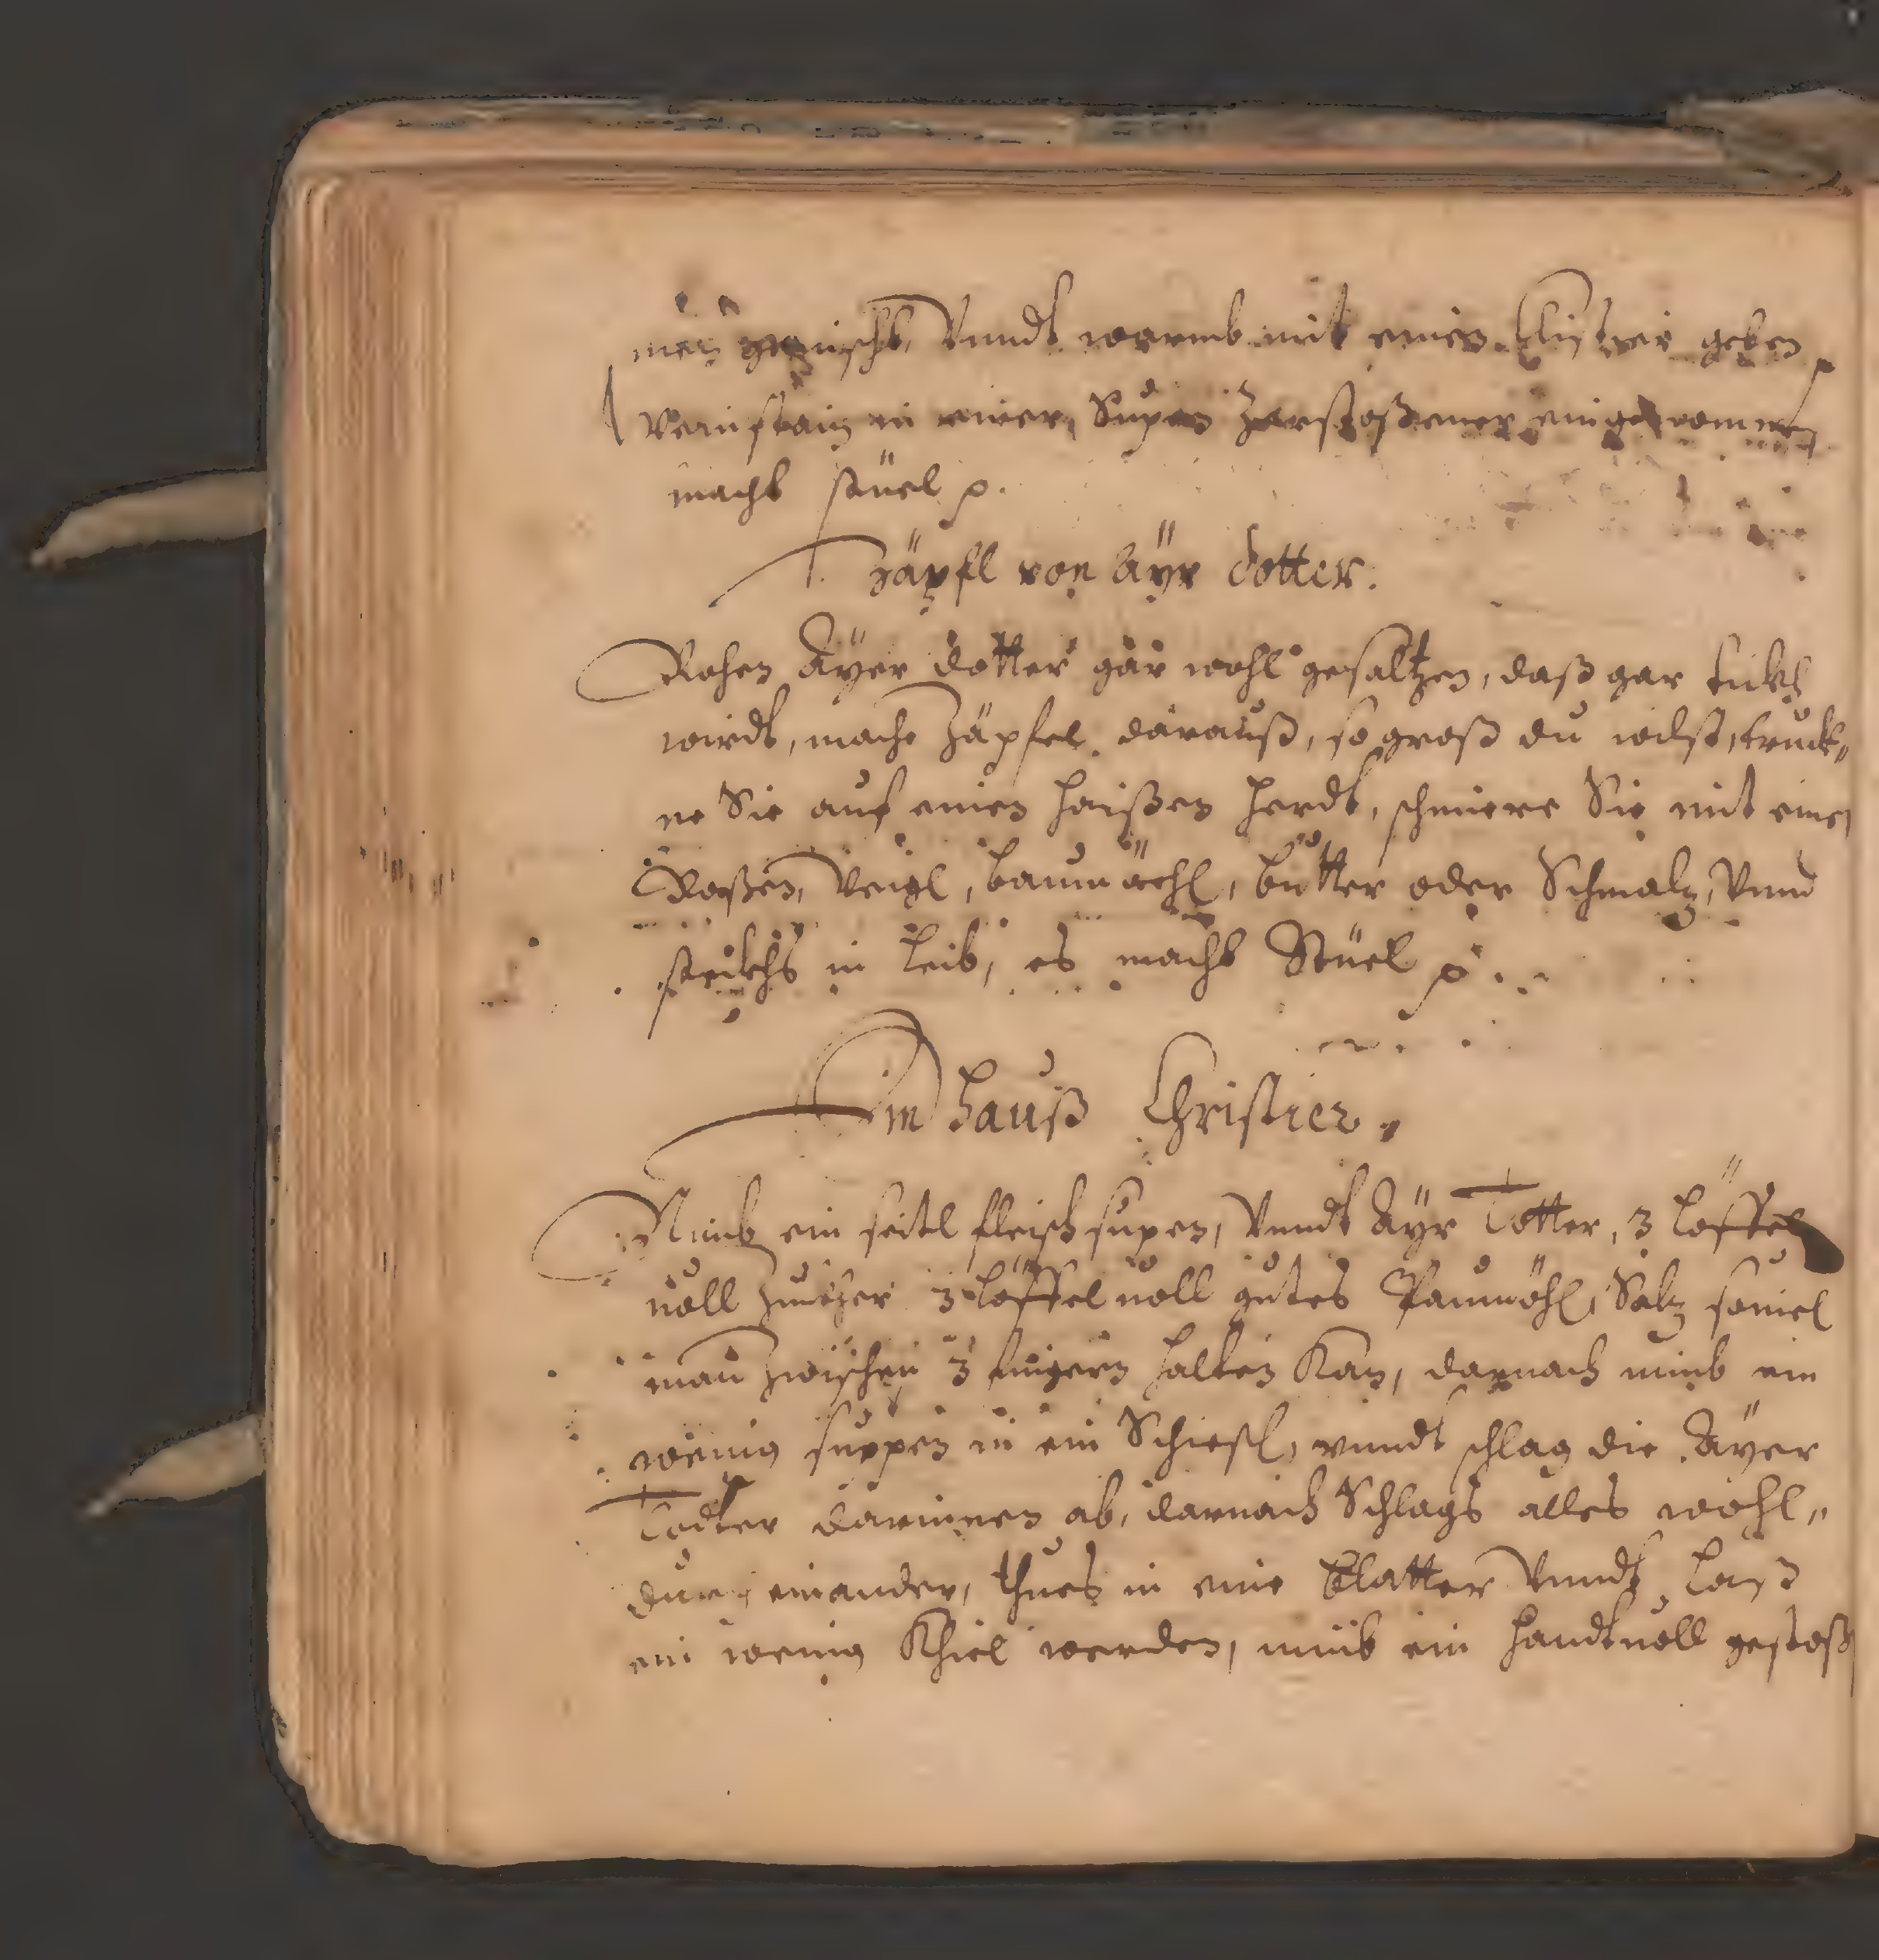 men gemischt, Vnndt warmb mit einen Clistier geben
Weinstain in einer Supen zerstoßener eingenommen
macht stüel p.
Zäpfl von Äyr dotter.
Rohen Äyer dotter gar wohl gesaltzen, daß gar dickh
wirdt, mache Zäpfel darauß, so groß du wilst, truck„
ne Sie auf einen haißen herdt, schmiere Sie mit einen
Roßen, Veigl, baumöehl, butter oder Schmalz, Vnnd
steckhs in leib, es macht Stüel p.
Ein hauß Christier.
Nimb ein seitl fleisch supen, Vnndt Äyr Totter, 3 löffel
voll Zuckher 3 löffel voll gutes Paumöhl, Salz souiel
man zwischen 3 fingern halten Kan, darnach nimb ein
wenig suppen in ein Schießl, vnndt schlag die Äyer
Todter darinnen ab, darnach Schlags alles wohl„
durch einander, thues in eine Blatter Vnndt laß
ein wenig Khiel werden, nimb ein handtuoll gestoß